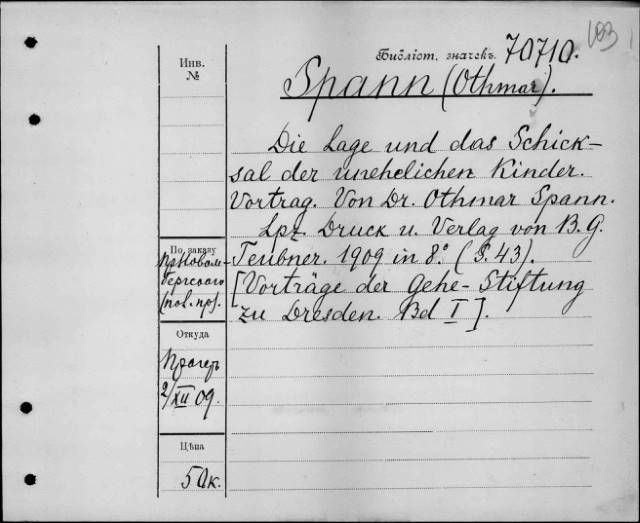 183
Библіот. значекъ 70710.
Инв.
№
Spann (Othmar).
Die Lage und das Schick-
sal der unehelichen Kinder.
Vortrag. Von Dr. Othmar Spann.
Lpz. Druck u. Verlag von B. G.
Teubner. 1909 in 8.° (S. 43).
[Vorträge der Gehe-Stiftung
zu Dresden. Bd I].
По заказу
Откуда
2/XII 09.
Цѣна
50к.